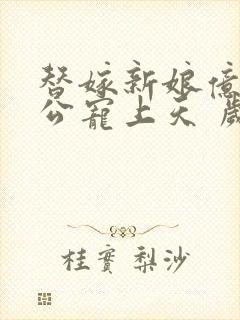 替嫁新娘億
公寵上天 歲
桂實梨沙